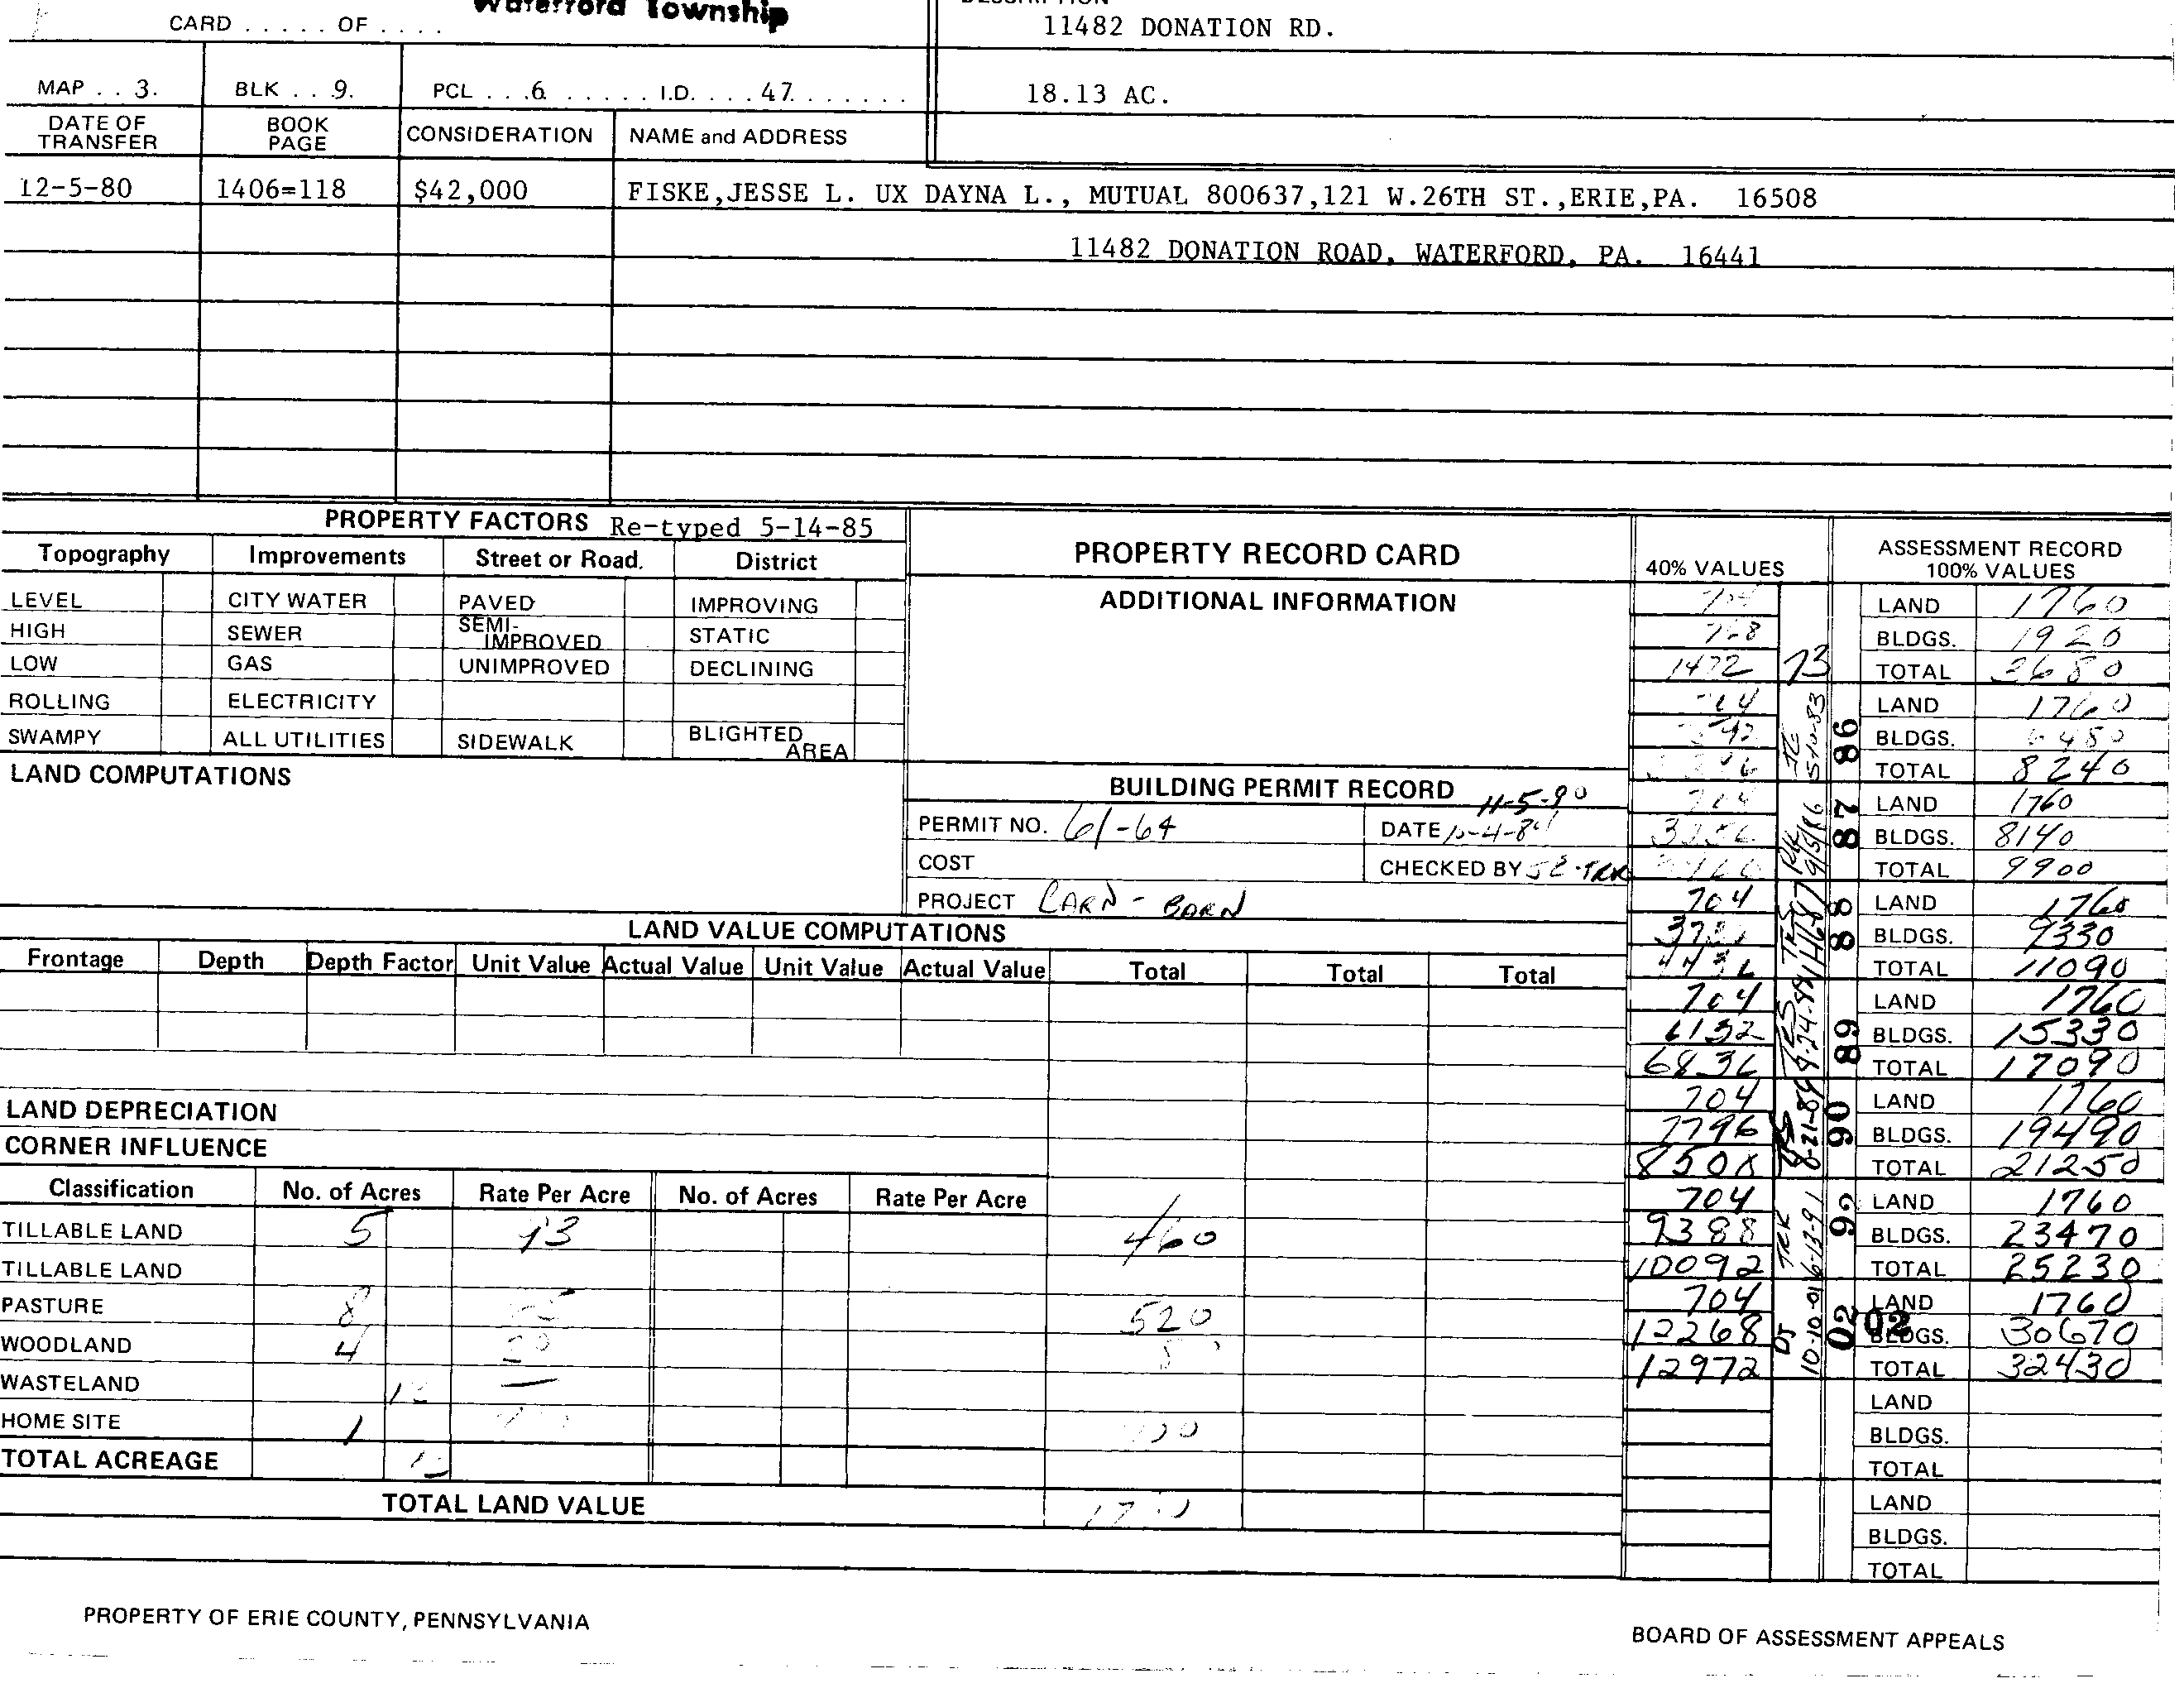 Waterford Township
CARD . . . . . OF . . . .
DESCRIPTION
11482 DONATION RD.
MAP . . 3. BLK . . 9. PCL . . .6 . . . . . . I.D. . . . .47. . . . . . .
18.13 AC.
DATE OF TRANSFER BOOK PAGE CONSIDERATION NAME and ADDRESS
12-5-80 1406=118 $42,000 FISKE,JESSE L. UX DAYNA L., MUTUAL 800637,121 W.26TH ST.,ERIE,PA. 16508
11482 DONATION ROAD, WATERFORD, PA. 16441
PROPERTY FACTORS Re-typed 5-14-85
Topography Improvements Street or Road. District
LEVEL CITY WATER PAVED IMPROVING
HIGH SEWER SEMI-IMPROVED STATIC
LOW GAS UNIMPROVED DECLINING
ROLLING ELECTRICITY
SWAMPY ALL UTILITIES SIDEWALK BLIGHTED AREA
LAND COMPUTATIONS
PROPERTY RECORD CARD
ADDITIONAL INFORMATION
BUILDING PERMIT RECORD 11-5-90
PERMIT NO. 61-64 DATE
COST CHECKED BY
PROJECT BARN
LAND VALUE COMPUTATIONS
Frontage Depth Depth Factor Unit Value Actual Value Unit Value Actual Value Total Total Total
LAND DEPRECIATION
CORNER INFLUENCE
Classification No. of Acres Rate Per Acre No. of Acres Rate Per Acre
TILLABLE LAND 5 460
TILLABLE LAND
PASTURE 8 520
WOODLAND 4
WASTELAND
HOME SITE 1
TOTAL ACREAGE
TOTAL LAND VALUE
40% VALUES ASSESSMENT RECORD 100% VALUES
LAND 1760
768 BLDGS. 1920
1472 73 TOTAL 3680
LAND 1760
5-10-83 86 BLDGS. 6480
TOTAL 8240
704 LAND 1760
3256 9/5/86 87 BLDGS. 8140
TOTAL 9900
704 LAND 1760
88 BLDGS. 9330
TOTAL 11090
704 LAND 1760
6132 89 BLDGS. 15330
6836 TOTAL 17090
704 LAND 1760
7796 90 BLDGS. 19490
8500 TOTAL 21250
704 LAND 1760
9388 TRK 6-13-91 92 BLDGS. 23470
10092 TOTAL 25230
704 LAND 1760
12268 DJ 10-10-01 02 02 BLDGS. 30670
12972 TOTAL 32430
LAND
BLDGS.
TOTAL
LAND
BLDGS.
TOTAL
PROPERTY OF ERIE COUNTY, PENNSYLVANIA
BOARD OF ASSESSMENT APPEALS